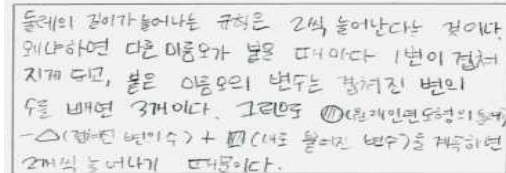 둘레의 길이가 늘어나는 규칙은 2씩 늘어난다는 것이다.
왜냐하면 다른 마름모가 붙을 때마다 1변이 겹쳐
지게 되고, 붙은 마름모의 변수는 겹쳐진 변의
수를 빼면 3개이다. 그러므로 (원래 인면 도형의 둘레)
-△(겹쳐진 변의 수) + (새로 붙여진 변수)를 계속하면
2개씩 늘어나기 때문이다.